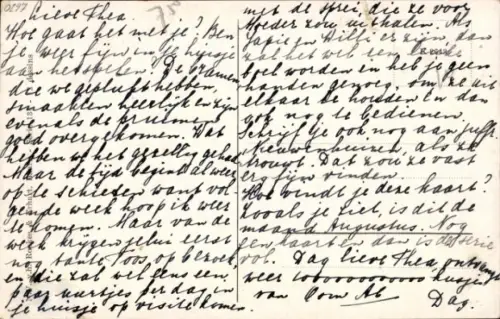 Lieve Thea.
Hoe gaat het met je? Ben
je weer fijn in je huisje
aan het spelen? De bramen
die we geplukt hebben,
smaakten heerlijk en zijn
evenals de pruimen
goed overgekomen. Wat
hebben we het gezellig gehad.
Maar de tijd begint al weer
op te schieten want vol-
gende week hoop ik weer
te komen. Maar van de
week krijgen jelui eerst
nog tante Toos, op bezoek
en die zal wel eens een
paar uurtjes per dag in
je huisje op visite komen.
met de sprei, die ze voor
Moeder zou uithalen. Als
Japie en Willie er zijn, dan
zal het wel een
boel worden en heb je geen
handen genoeg, om ze uit
elkaar te houden en dan
ook nog te bedienen.
Schrijf je ook nog aan juff.
Nieuwenhuizen, als ze
trouwt. Dat zou ze vast
erg fijn vinden.
Hoe vindt je deze kaart?
Zooals je ziet, is dit de
maand Augustus. Nog
een kaart en dan is de serie
vol. Dag lieve Thea, ontvang
weer 1000000000000 kusjes
van Oom Ab Dag.